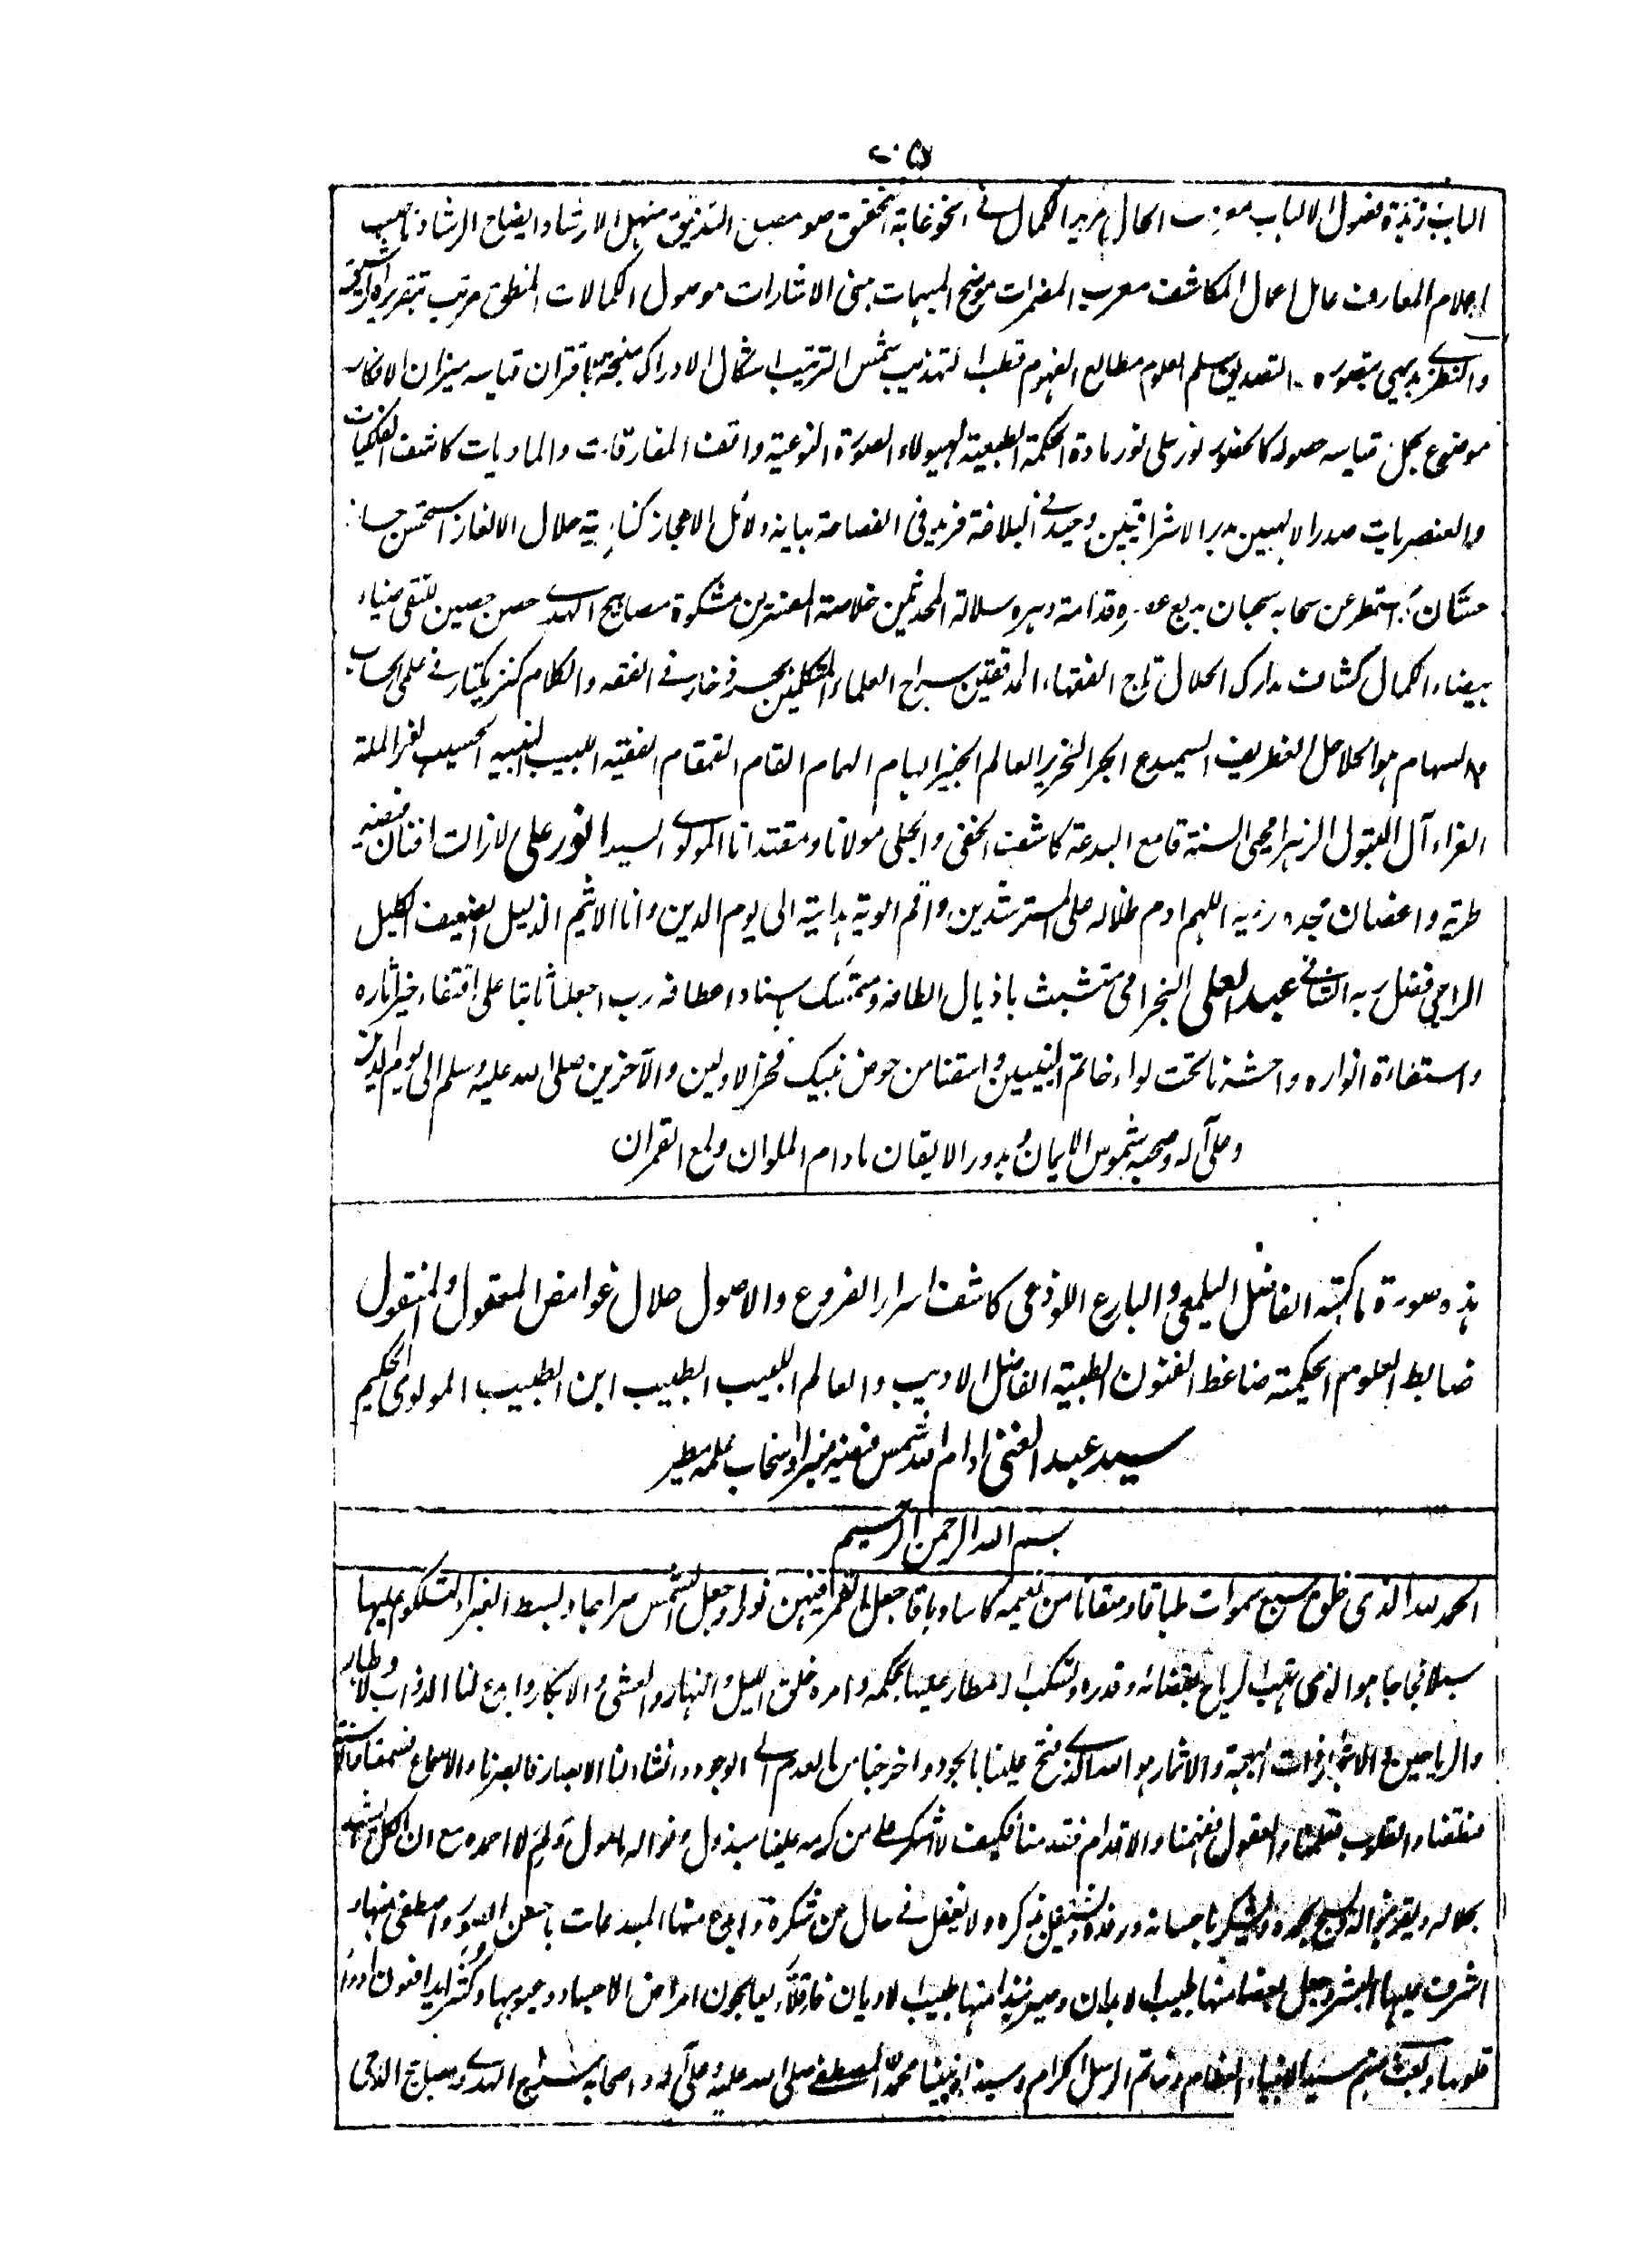 ٢٠٥
الباب زبدة فصول الالباب معرب الحال مزيد الكمال في النحو غاية التحقيق صومصباح التدقيق منهل الارشاد ايضاح الرشاد ناصب
اعلام المعارف عامل اعمال المكاشف معرب المضمرات موضح المبهمات مبنى الاشارات موصول الكمالات المنطق مرتب بتقريره
والنظرى بديهى بتصوره التصديق سلم العلوم مطالع الفهوم قطب التهذيب شمس الترتيب اشكال الادراك منتجة باقتران قياسه ميزان الافكار
موضوع بحمل قياسه نور على نور مادة الحكمة الطبعية لهيولاه الصورة النوعية واقف المفارقات والماديات كاشف الفلكيات
والعنصريات صدر الالهيين بدر الاشراقيين وحيد في البلاغة فريد فى الفصاحة بيانه دلائل الاعجاز كنايته حلال الالغاز استحسن حسانه
استمطر عن سحابه سحبان بديع عصره قدامة دهره سلالة المحدثين خلاصة المفسرين مشكوة مصابيح الهدى حصن حصين للتقى ضياء
بيضاء الكمال كشاف مدارك الحلال تاج الفقهاء المدققين سراج العلماء المتكلمين بحر ذخار في الفقه والكلام كنز يكتار في علمى الحساب
والسهام هو الحلاحل الغطريف السميدع الحبر النحرير العالم الخبير الهمام القمقام الفقيه اللبيب النبيه الحسيب الغر الملة
الغراء آل البتول الزهرا محى السنة قامع البدعة كاشف الخفى والجلى مولانا ومقتدانا المولوى السيد انور على لازالت افنان فيضه
طرية واغصان مجده اللهم ادم ظلاله على المسترشدين واقم الوية هدايته الى يوم الدين وانا الاثيم الذليل الضعيف الكليل
الراجى فضل ربه عبد العلى النجرامى متشبث باذيال الطافه ومتمسك باسناد اعطافه رب اجعلنا ثابتا على اقتفاء خير اثاره
واستفادة انواره واحشرنا تحت لواء خاتم النبيين واسقنا من حوض نبيك فخر الاولين والآخرين صلى الله عليه وسلم الى يوم الدين
وعلى آله وصحبه شموس الايمان وبدور الايقان مادام الملوان ولمع القمران
هذه صورة ما كتبه الفاضل اليلمعى والبارع اللوذعى كاشف اسرار الفروع والاصول حلال غوامض المعقول والمنقول
ضابط العلوم الحكمية ضاغط الفنون الطبية الفاضل الاديب والعالم اللبيب الطبيب ابن الطبيب المولوى الحكيم
سيد عبد الغنى ادام الله شمس فيضه منيرا وسحاب علمه مطير
بسم الله الرحمن الرحيم
الحمد لله الذى خلق سبع سموات طباقا وسقانا من نعيمه كاسا دهاقا جعل القمر فيهن نورا وجعل الشمس سراجا وبسط الغبراء لتسلكوا عليها
سبلا فجاجا هو الذى تهب الرياح بقضائه وقدره وتسكب الامطار عليها بحكمه وامره خلق الليل والنهار والعشى والابكار وابدع لنا
والرياحين والاشجار ذات البهجة والاثمار هو الله الذى فتح علينا باب الجود واخرجنا من العدم الى الوجود وانشاء لنا الابصار فابصرنا والاسماع فسمعنا
فنطقنا والقلوب فعقلنا والعقول ففهمنا والاقدام فقدمنا فكيف لا اشكر على من كرمه علينا مبذول ونواله مامول ولم لا احمده مع ان الكل يشهد
بجلاله ويقر بنواله ويسبح بحمده ويشكر باحسانه ورفده ويشتغل بذكره ولا يغفل في حال عن شكره وابدع منها المبدعات باحسن الصور واصطفى منها
اشرف عليها البشر وجعل بعضا منها طبيب الابدان وصير نبذا منها طبيب الاديان يعالجون امراض الاجساد وعيوبها
قلوبها وبعث منهم سيد الانبياء العظام وخاتم الرسل الكرام سيدنا ونبينا محمد المصطفى صلى الله عليه وعلى آله واصحابه الهدى ومصباح الدجى